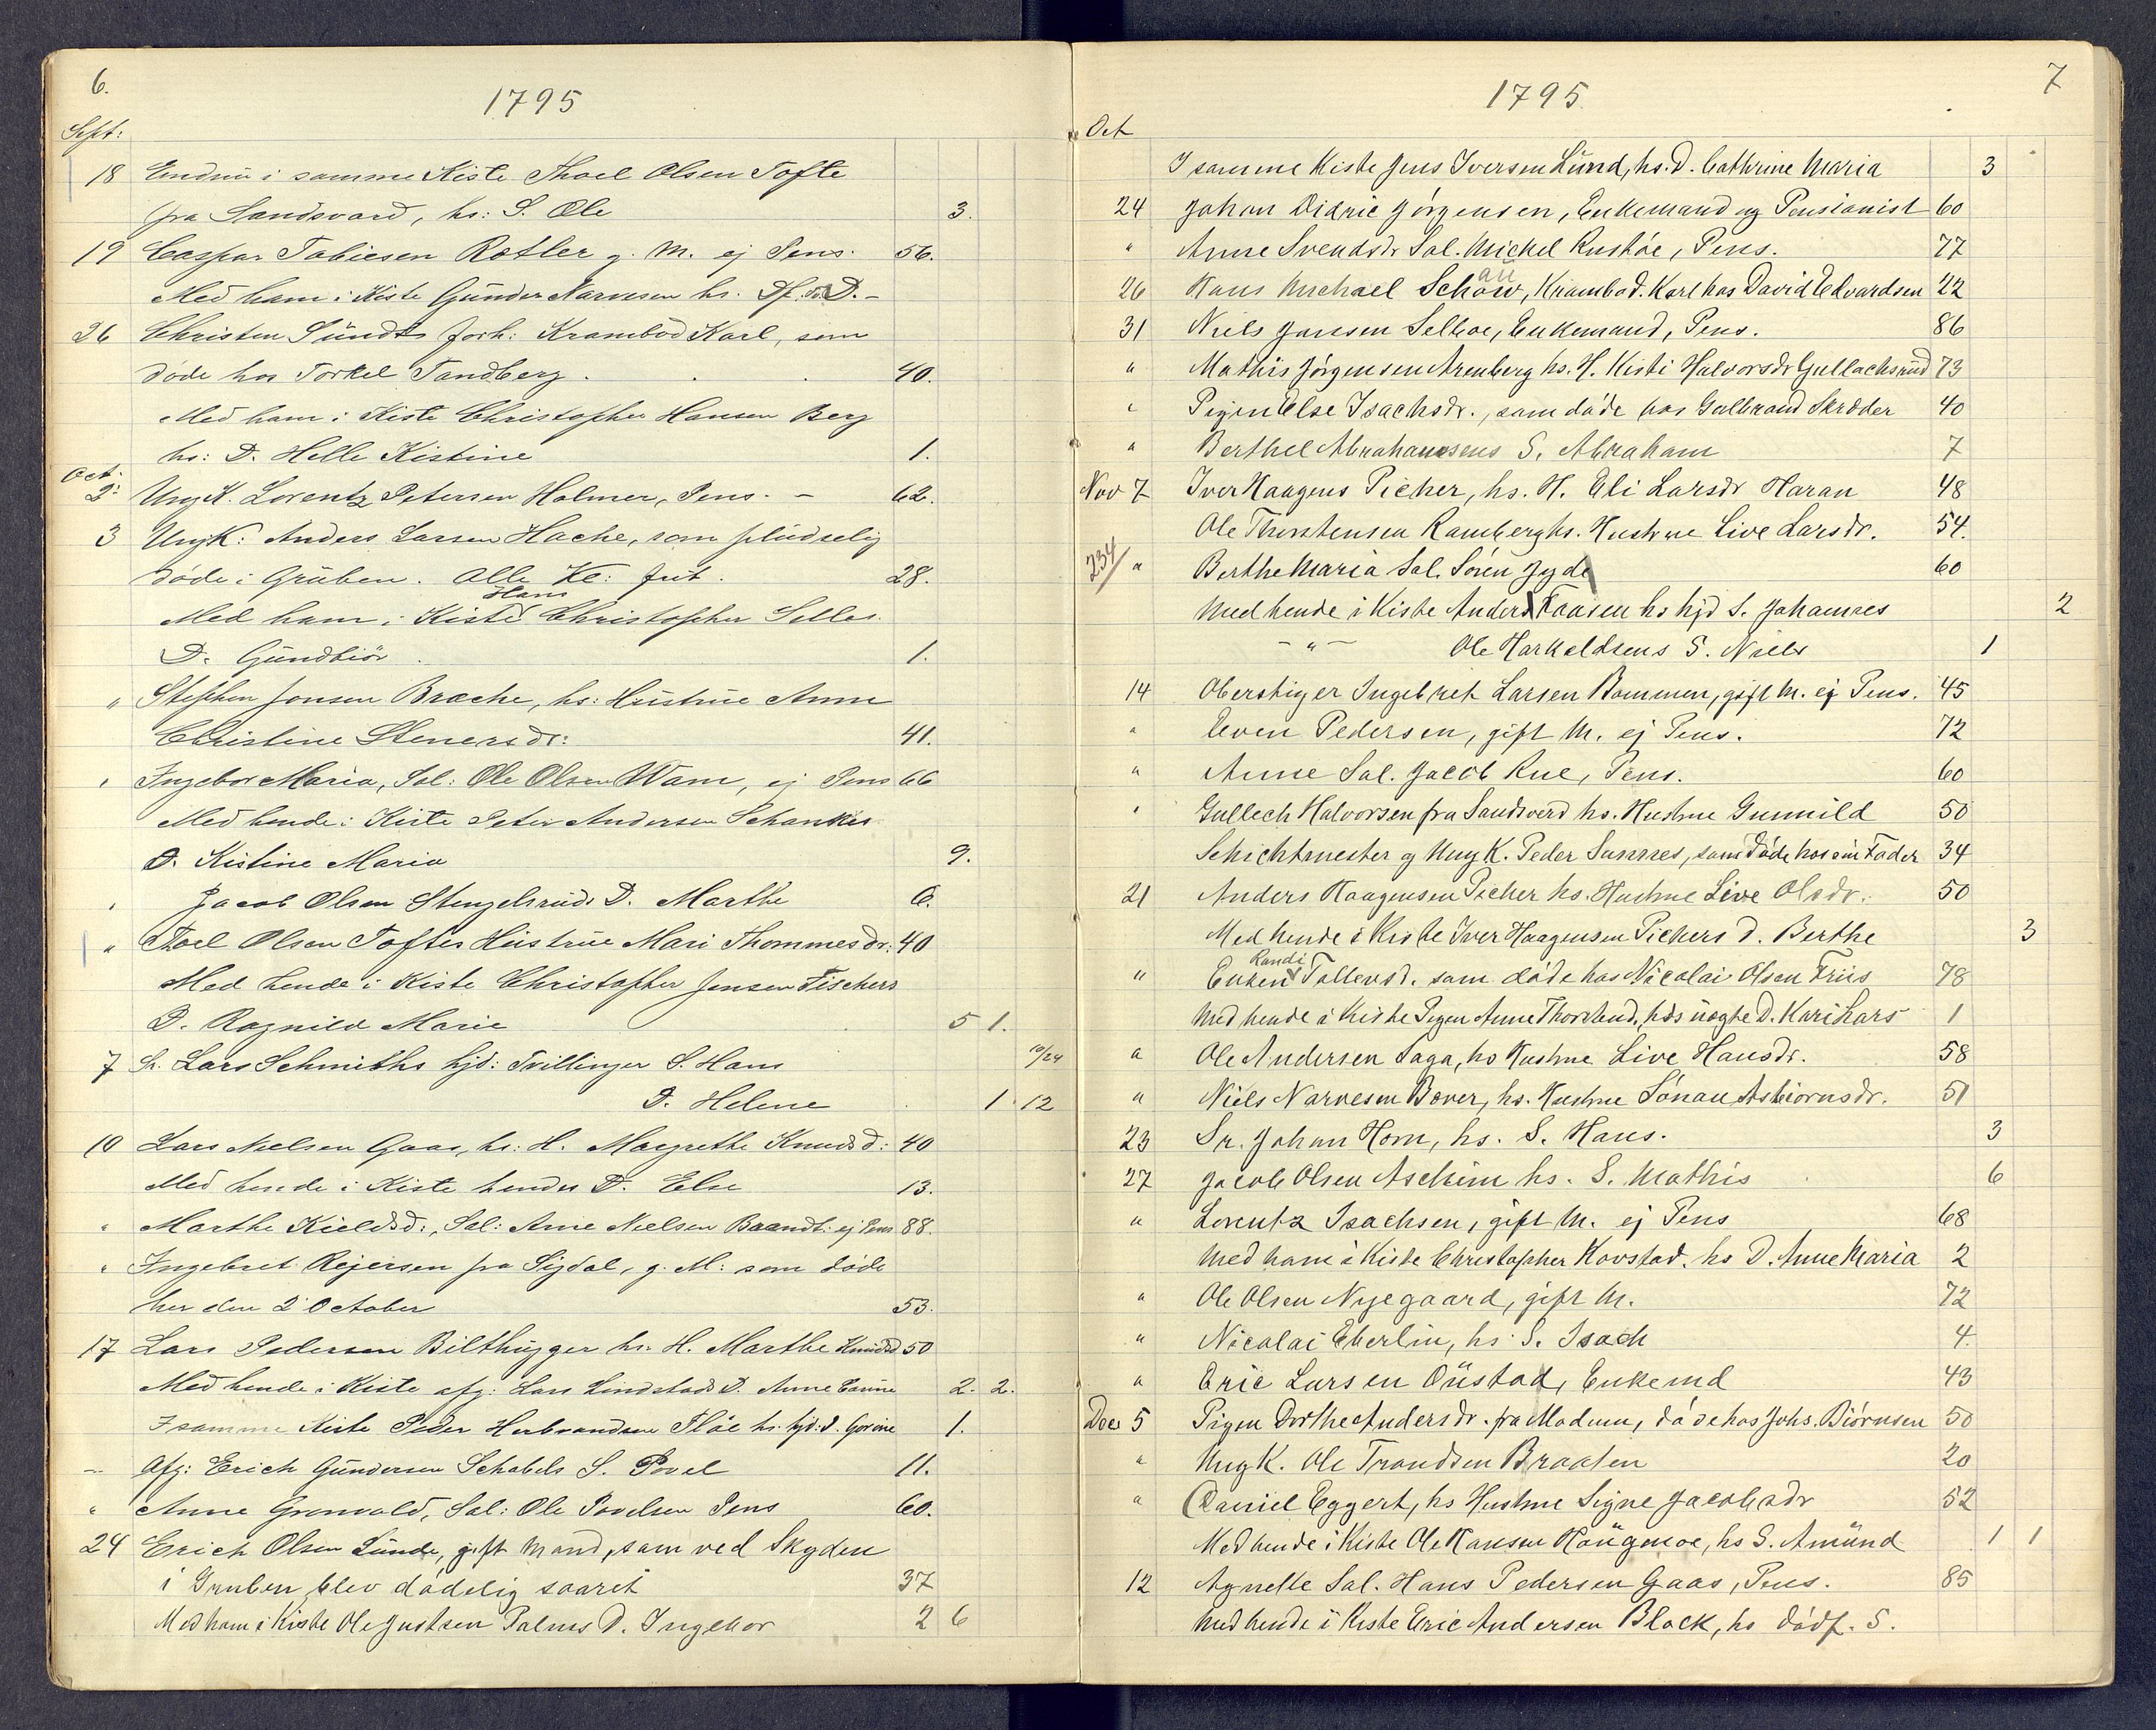 6.
1795
Sept:
18 Endnu i samme Kiste Thoel Olsen Tofte
fra Sandsvard, hs: S. Ole 3.
19 Caspar Tobiesen Rotler g. M. ej Pens. 56.
Med ham i Kiste Gunder Narvesen hs. Df. D. -
26 Christen Sundt forh: Krambod Karl, som
døde hos Torkel Tandberg . . . 40.
Med ham i Kiste Christopher Hansen Berg
hs: D. Helle Kistine 1.
Oct:
2 Ung K. Lorentz Petersen Holmer, Pens. - 62.
3 UngK: Anders Larsen Hache, som pludselig
døde i Gruben. Alle Ke: frit. 28.
Med ham i Kiste Hans Christopher Selles
D. Gundbiør . 1.
" Stephen Jonsen Brache, hs: Hustrue Anne
Christine Stenersdr: 41.
" Ingebor Maria, Sal: Ole Olsen Wam, ej Pens 66
Med hende i Kiste Peter Andersen Schankes
D. Kistine Maria 9.
" Jacob Olsen Stengelsruds D. Marthe 6.
" Thoel Olsen Toftes Hustrue Mari Thommesdr: 40
Med hende i Kiste Christopher Jensen Fischers
D. Ragnild Marie 5 1.
7 Sr. Lars Schmiths hjd: Tvillinger S. Hans 10/24
D. Helene 1 12
10 Lars Nielsen Gaas, hs: H. Magrethe Knudsd: 40
Med hende i Kiste hendes D. Else 13.
" Marthe Kieldsd:, Sal: Arne Nielsen Baandt: ej Pens 88.
" Ingebret Rejersen fra Sigdal, g. M: som døde
her den 2 October 53.
17 Lars Pedersen Bilthugger hs. H. Marthe Knudsd 50
Med hende i Kiste afg: Lars Lindstads D. Anne Carine 2. 2.
I samme Kiste Peder Herbrandsen Fløe hs. hjd: D. Gorine 1.
" Afg: Erich Gundersen Schabels S. Povel 11.
" Anne Gronvald, Sal: Ole Povelsen Pens 60.
24 Erich Olsen Lunde, gift Mand, som ved Skyden
i Gruben blev dødelig saaret 37
Med ham i Kiste Ole Justsen Palms D. Ingebor 2 6
7
1795
Oct
I samme Kiste Jens Iversen Lund, hs. D. Cathrine Maria 3
24 Johan Didric Jørgensen, Enkemand og Pensionist 60
" Anne Svendsdr Sal. Mickel Rustøe, Pens. 77
26 Hans Michael Schow, Krambod. Karl hos David Edvardsen 22
au
31 Niels Jansen Selboe, Enkemand, Pens. 86
" Mathis Jørgensen Arenberg hs. H. Kisti Halvorsdr Gullachsrud 73
" Pigen Else Isachsdr., som døde hos Gulbrand Skræder 40
" Berthel Abrahamsens S. Abraham 7
Nov 7 Iver Haagens Picher, hs. H. Eli Larsdr Haran 48
Ole Thorstensen Ramberg hs. Hustrue Live Larsdr. 54.
234/ " Berthe Maria Sal. Søren Jyde 60
Med hende i Kiste Anders Fansen hs hjd S. Johannes 2
- " - Ole Harkeldsens S. Niels 1
14 Oberstiger Ingebret Larsen Bommen, gift M. ej Pens. 45
" Even Pedersen, gift M. ej Pens. 72
" Anne Sal. Jacob Rue, Pens. 60
" Gullech Halvorsen fra Sandsverd hs. Hustrue Gunnild 50
Schichtmester og Ung K. Peder Sannes, som døde hos sin Fader 34
21 Anders Haagensen Picher hs. Hustrue Live Olsdr. 50
Med hende i Kiste Iver Haagensen Pichers D. Berthe 3
" Enken Randi Tollevsd. som døde hos Nicolai Olsen Friis 78
Med hende i Kiste Pigen Anne Thorsland, hds uægte D. Kari Lars 1
" Ole Andersen Saga, hs Hustrue Live Hansdr. 58
" Niels Narvesen Bover, hs. Hustrue Sønau Asbiornsdr. 51
23 Sr. Johan Horn, hs. S. Hans. 3
27 Jacob Olsen Aschim hs. S. Mathis 6
" Lorentz Isachsen, gift M. ej Pens 68
Med ham i Kiste Christopher Kovstad. hs D. Anne Maria 2
" Ole Olsen Nyegaard, gift M. 72
" Nicolai Eberlin, hs: S. Isach 4.
" Eric Larsen Oustad, Enkemd 43
Dec 5 Pigen Dorthe Andersdr. fra Modum, døde hos Johs. Biørnsen 50
" Ung K. Ole Trondsen Braaten 20
" Daniel Eggert, hs Hustrue Signe Jacobsdr 52
Med hende i Kiste Ole Hansen Hougmoe, hs S. Amund 1 1
12 Agnette Sal. Hans Pedersen Gaas, Pens. 85
Med hende i Kiste Eric Andersen Block, hs dødf. S.